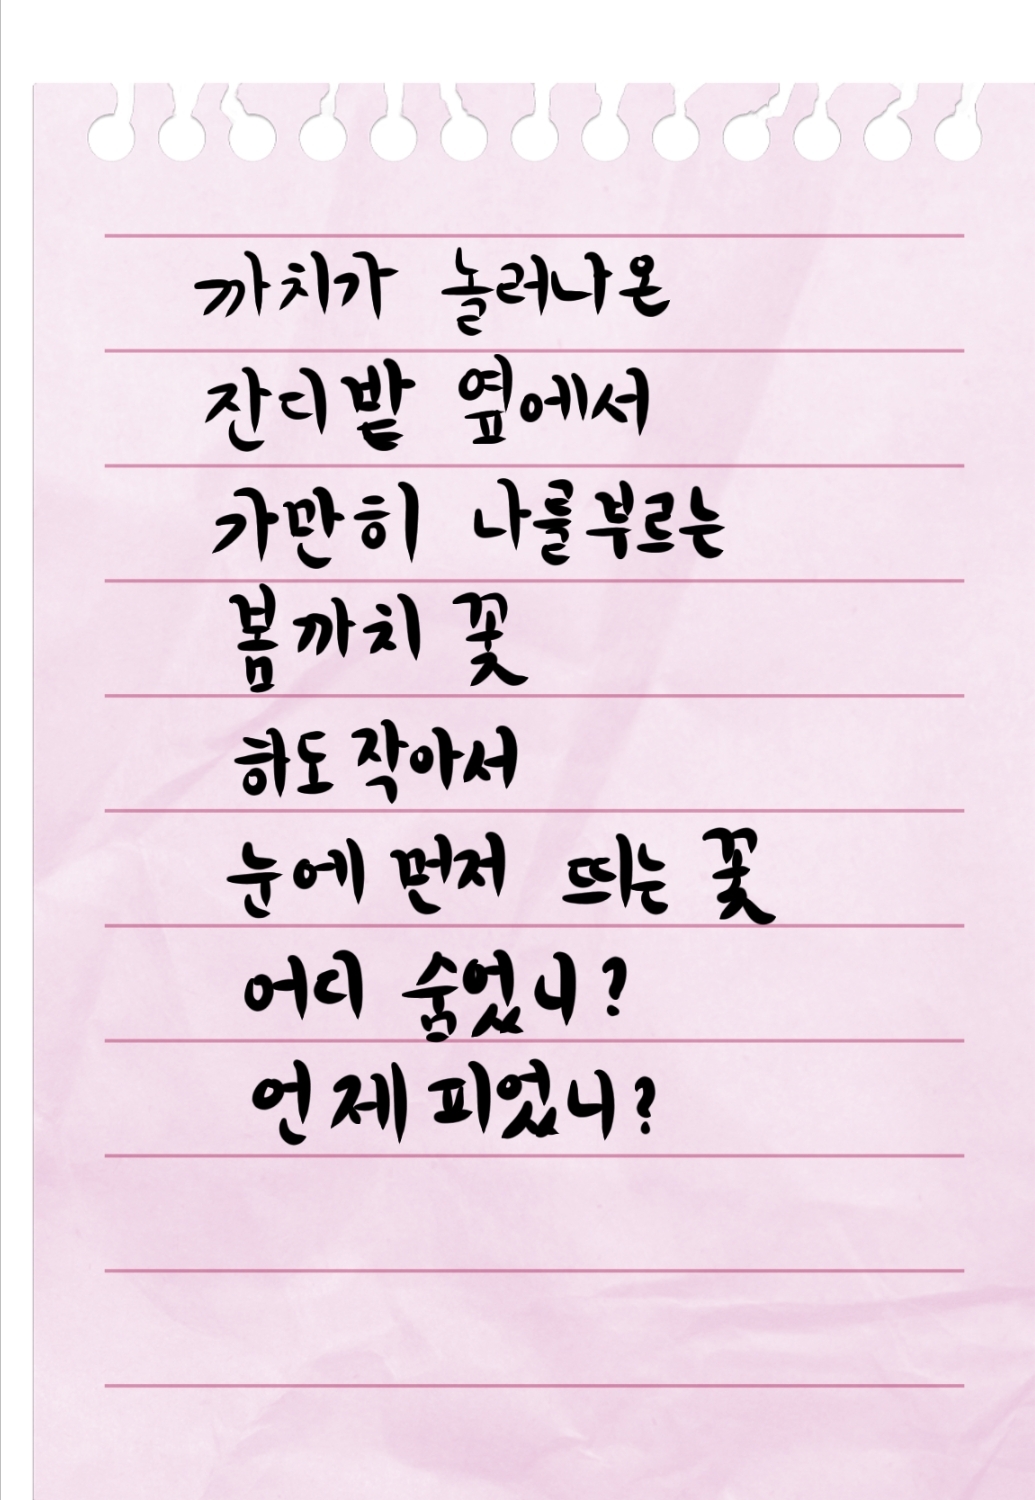 까치가 놀러나온
잔디밭 옆에서
가만히 나를부르는
봄까치 꽃
하도 작아서
눈에 먼저 띄는 꽃
어디 숨었니?
언제 피었니?